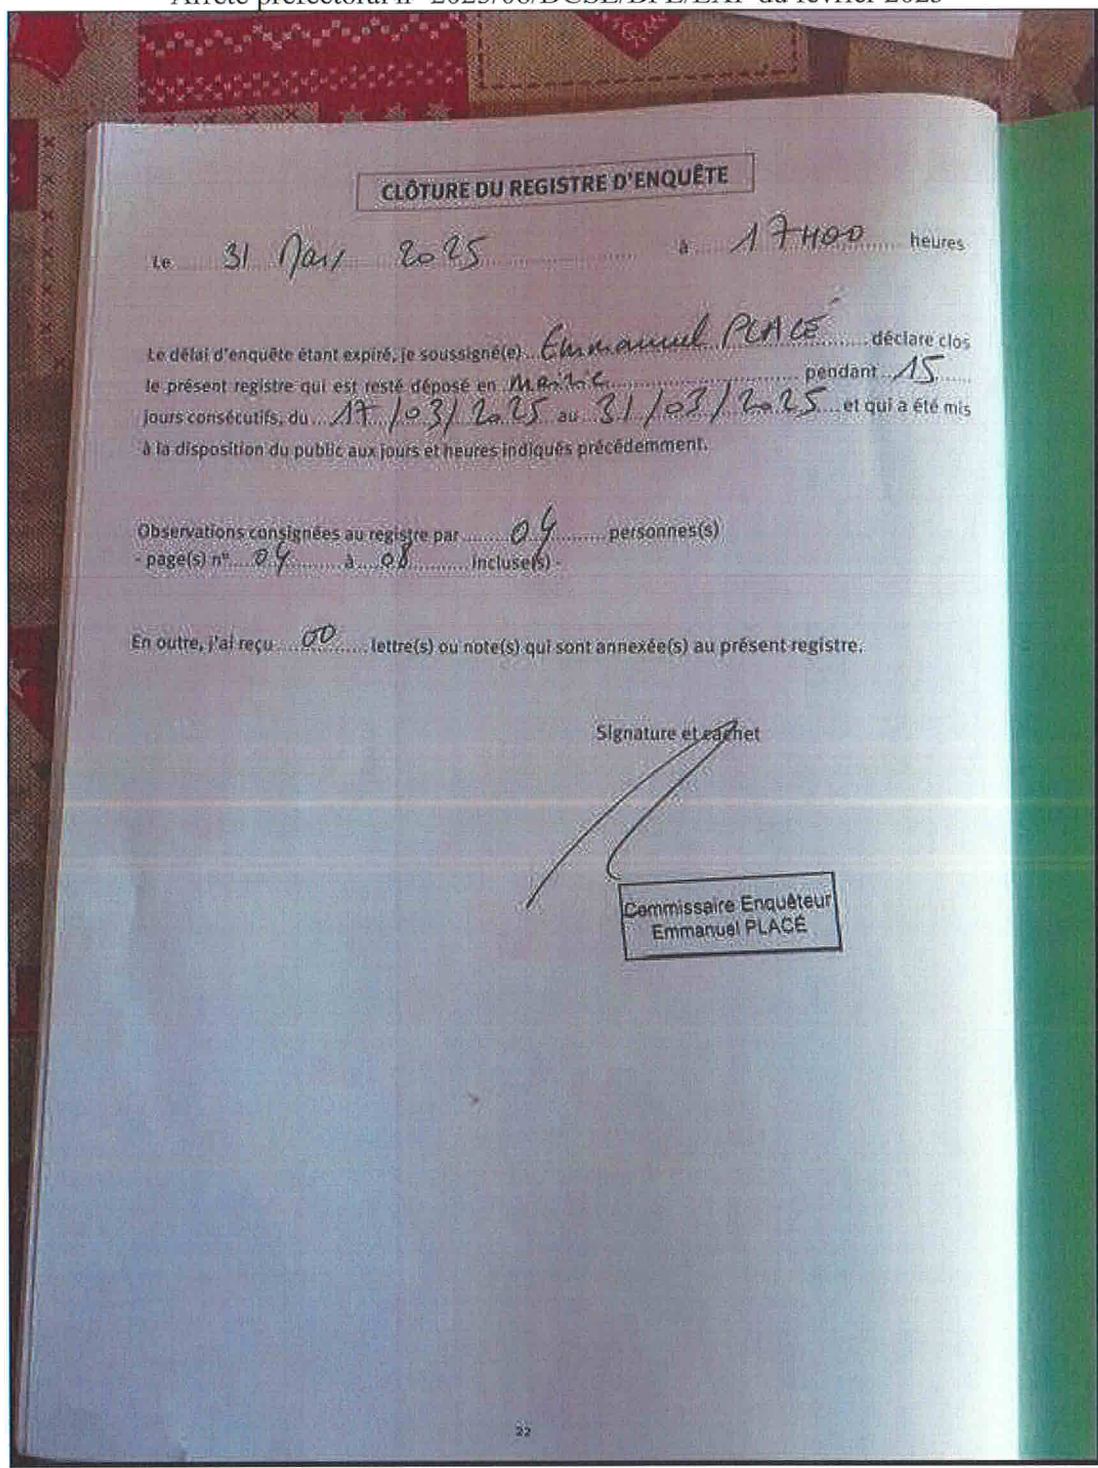 Arrêté préfectoral n° 2025/06/DCSE/BPE/EXP du février 2025
CLÔTURE DU REGISTRE D'ENQUÊTE
Le 31 Mars 2025 à 17H00 heures
Le délai d'enquête étant expiré, je soussigné(e) Emmanuel PLACÉ déclare clos
le présent registre qui est resté déposé en Mairie pendant 15
jours consécutifs, du 17/03/2025 au 31/03/2025 et qui a été mis
à la disposition du public aux jours et heures indiqués précédemment.
Observations consignées au registre par 04 personnes(s)
- page(s) n° 04 à 08 incluse(s) -
En outre, j'ai reçu 00 lettre(s) ou note(s) qui sont annexée(s) au présent registre.
Signature et cachet
Commissaire Enquêteur
Emmanuel PLACÉ
22